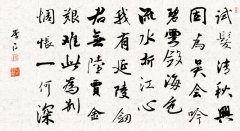 試髮清秋興
因為吳會吟
碧雲斂海色
流水折江心
我有延陵劍
君無陸賈金
艱難此為別
惆悵一何深